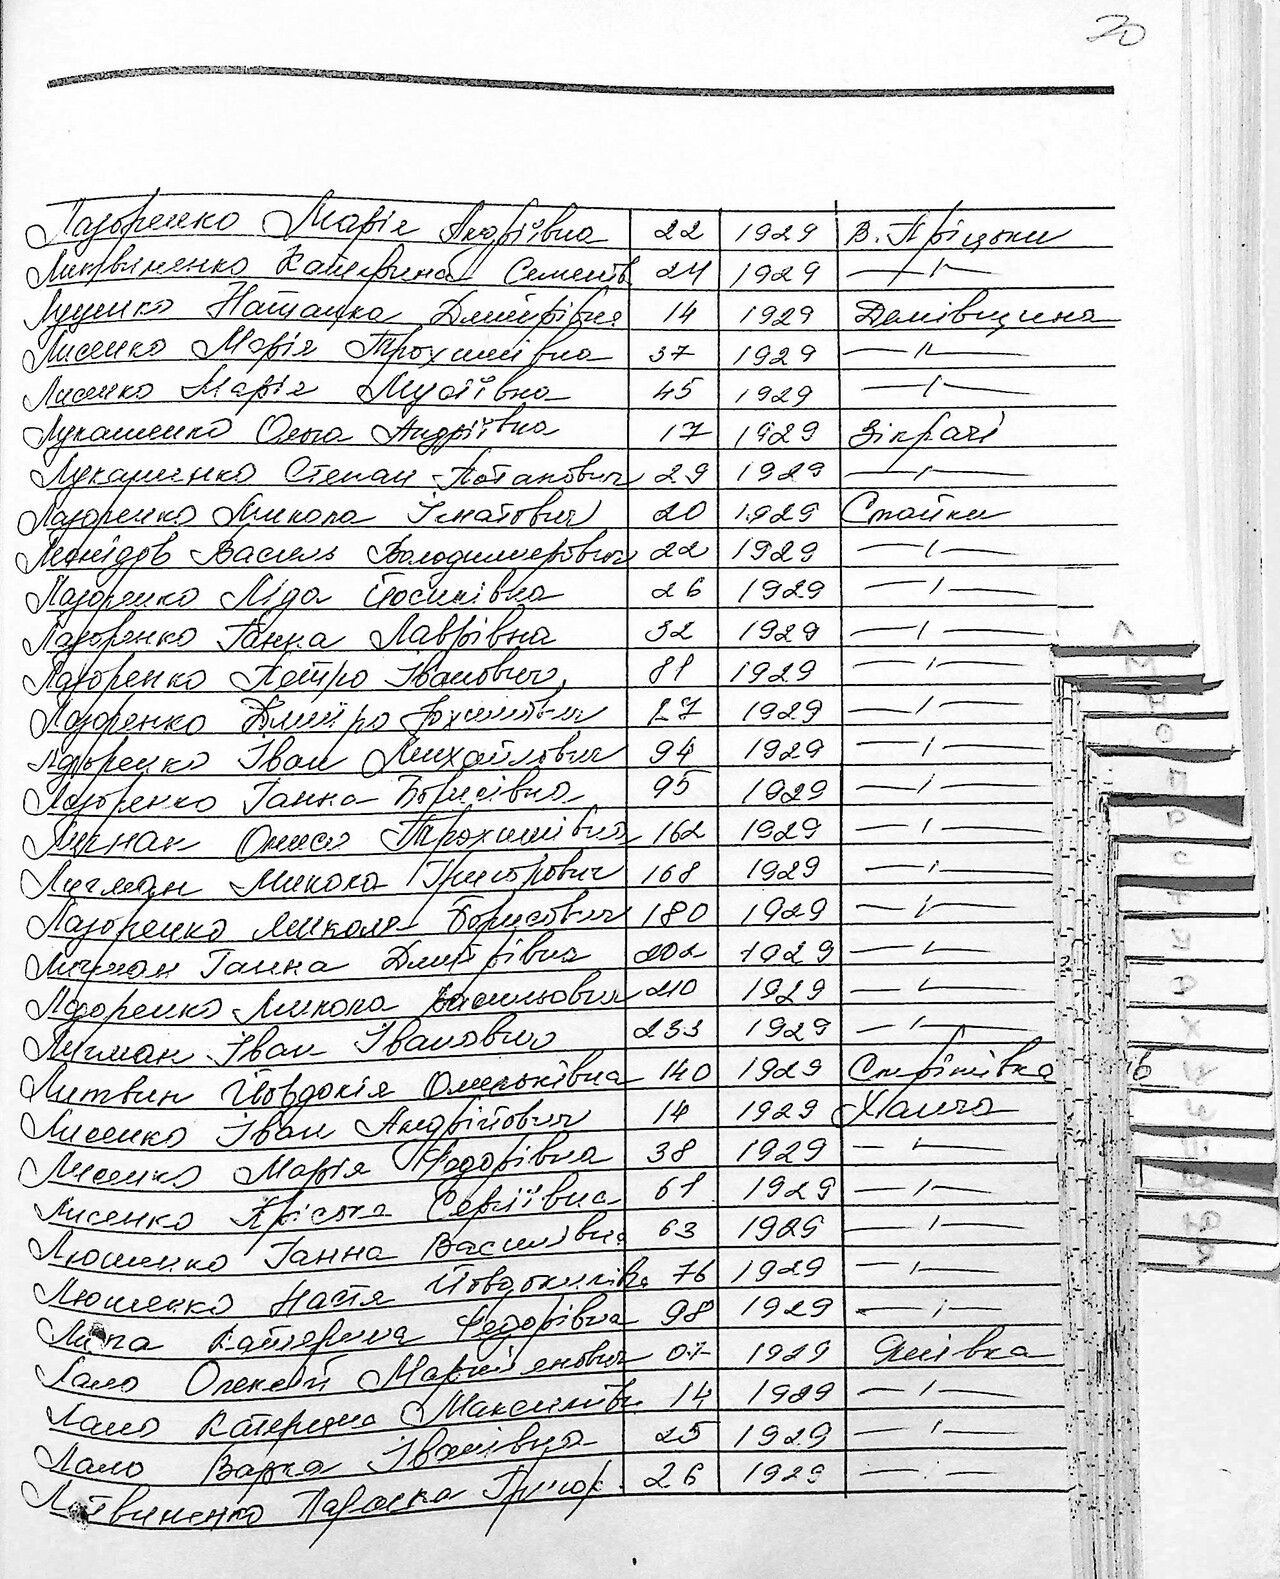 20
Лазоренко Марія Андріївна 22 1929 В. Пріцьки
Литвиненко Катерина Семенів 24 1929 —"—
Луценко Наталка Дмитрівна 14 1929 Демівщина
Лисенко Марія Трохимівна 37 1929 —"—
Лисенко Марія Мусіївна 45 1929 —"—
Лукашенко Ольга Андріївна 17 1929 Зікрачі
Лукашенко Степан Потапович 29 1929 —"—
Лазоренко Микола Ігнатович 20 1929 Стайки
Леонідов Василь Володимирович 22 1929 —"—
Лазоренко Ліда Йосипівна 26 1929 —"—
Лазоренко Ганна Лаврівна 32 1929 —"—
Лазоренко Петро Іванович 81 1929 —"—
Лазоренко Дмитро Юхимович 87 1929 —"—
Лазоренко Іван Михайлович 94 1929 —"—
Лазоренко Ганна Борисівна 95 1929 —"—
Трохимівна 162 1929 —"—
Лигман Микола Григорович 168 1929 —"—
Лазоренко Микола Борисович 180 1929 —"—
Лигман Ганна Дмитрівна 202 1929 —"—
Лазоренко Микола Васильович 210 1929 —"—
Лигман Іван Іванович 233 1929 —"—
Литвин Йовдокія Омельківна 140 1929 Стрітівка
Лисенко Іван Андрійович 14 1929 Халча
Лисенко Марія Федорівна 38 1929 —"—
Лисенко Пріська Сергіївна 61 1929 —"—
Люшенко Ганна Василівна 63 1929 —"—
Люшенко Настя Йовдокимівна 76 1929 —"—
Липа Катерина Федорівна 98 1929 —"—
Лало Олексій Мар'янович 07 1929 Янівка
Лало Катерина Максимів 14 1929 —"—
Лало Варка Іванівна 25 1929 —"—
Литвиненко Параска Григор. 26 1929 —"—